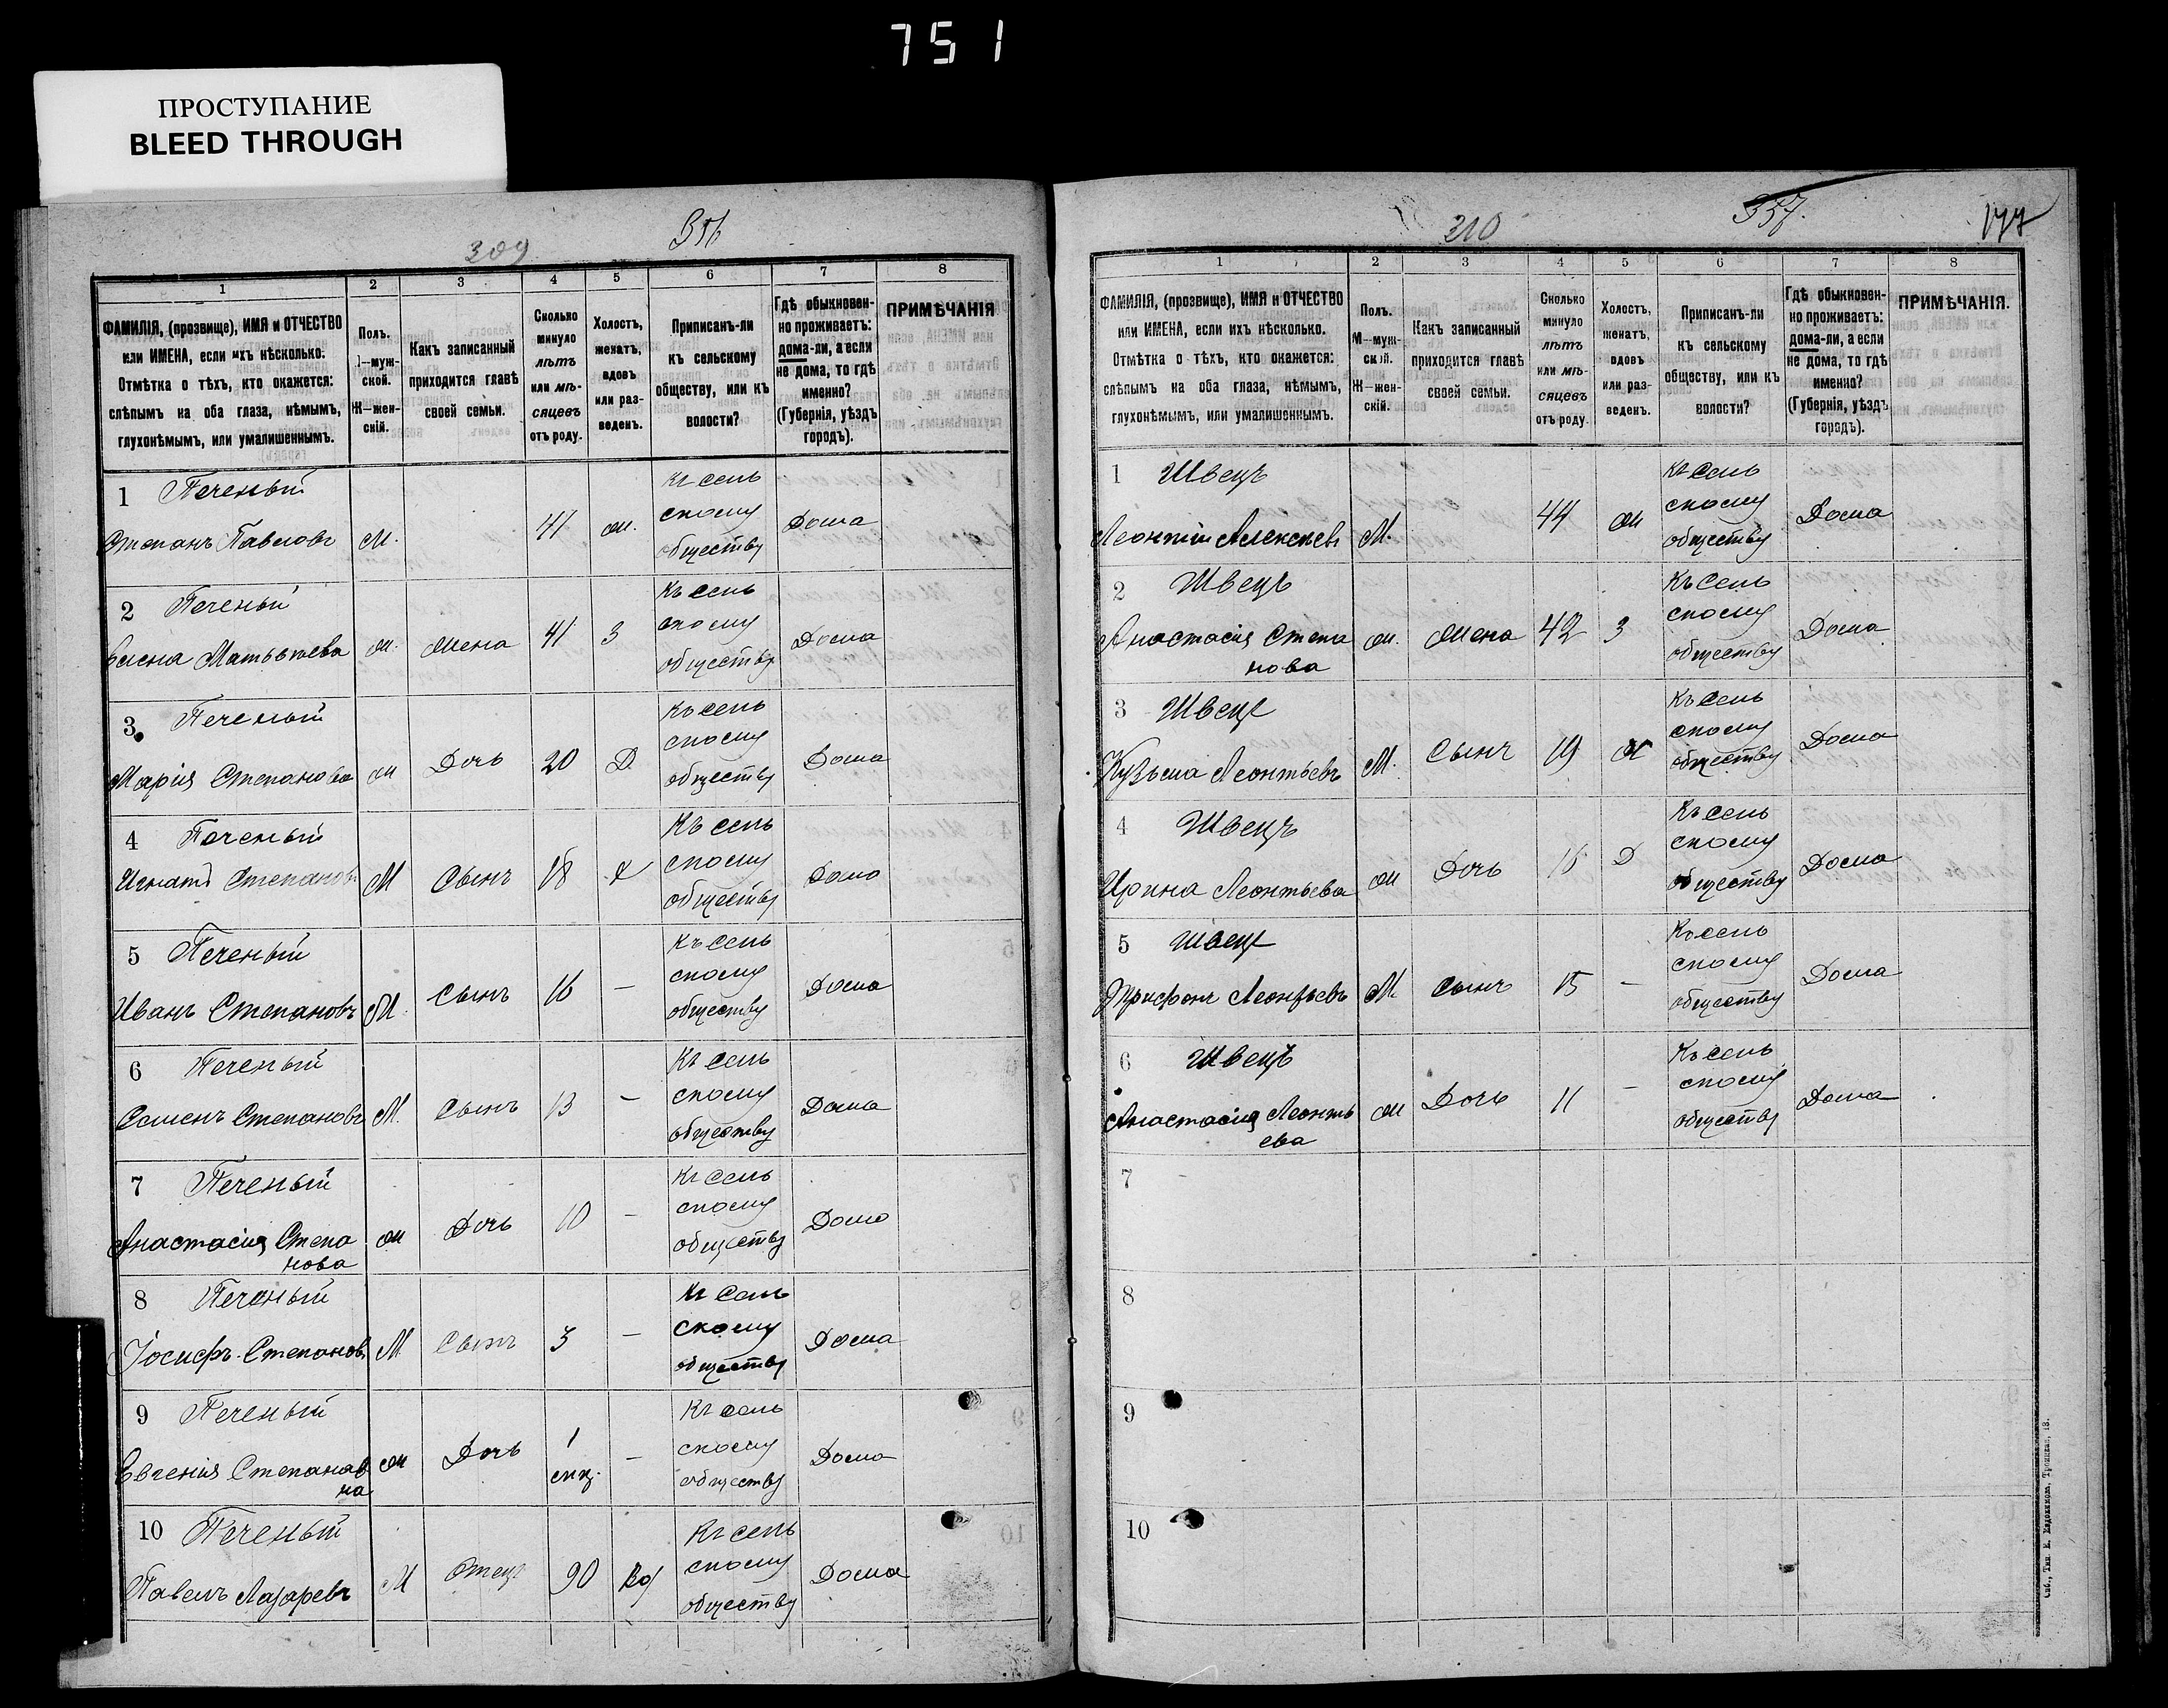 751
ПРОСТУПАНИЕ
BLEED THROUGH
309
356
1 2 3 4 5 6 7 8
ФАМИЛІЯ, (прозвище), ИМЯ и ОТЧЕСТВО
или ИМЕНА, если ихъ нѣсколько.
Отмѣтка о тѣхъ, кто окажется:
слѣпымъ на оба глаза, нѣмымъ,
глухонѣмымъ, или умалишеннымъ.
Полъ.
М—муж-
ской.
Ж—жен-
скій.
Какъ записанный
приходится главѣ
своей семьи.
Сколько
минуло
лѣтъ
или мѣ-
сяцевъ
отъ роду.
Холостъ,
женатъ,
вдовъ
или раз-
веденъ.
Приписанъ-ли
къ сельскому
обществу, или къ
волости?
Гдѣ обыкновен-
но проживаетъ:
дома-ли, а если
не дома, то гдѣ
именно?
(Губернія, уѣздъ
городъ).
ПРИМѢЧАНІЯ
1 Печеный
Степанъ Павловъ М. 41 ж. Къ сель
скому
обществу Дома
2 Печеный
Матвѣева ж. Жена 41 З Къ сель
скому
обществу Дома
3 Печеный
Марія Степанова ж Дочь 20 Д Къ сель
скому
обществу Дома
4 Печеный
Игнатъ Степановъ М Сынъ 18 х Къ сель
скому
обществу Дома
5 Печеный
Иванъ Степановъ М. Сынъ 16 — Къ сель
скому
обществу Дома
6 Печеный
Семенъ Степановъ М. Сынъ 13 — Къ сель
скому
обществу Дома
7 Печеный
Анастасія Степа
нова ж Дочь 10 — Къ сель
скому
обществу Дома
8 Печеный
Іосифъ Степановъ М Сынъ 3 — Къ сель
скому
обществу Дома
9 Печеный
Евгенія Степанов
на ж Дочь 1 — Къ сель
скому
обществу Дома
10 Печеный
Павелъ Лазаревъ М Отецъ 90 Къ сель
скому
обществу Дома
210
357.
177
1 2 3 4 5 6 7 8
ФАМИЛІЯ, (прозвище), ИМЯ и ОТЧЕСТВО
или ИМЕНА, если ихъ нѣсколько.
Отмѣтка о тѣхъ, кто окажется:
слѣпымъ на оба глаза, нѣмымъ,
глухонѣмымъ, или умалишеннымъ.
Полъ.
М—муж-
ской.
Ж—жен-
скій.
Какъ записанный
приходится главѣ
своей семьи.
Сколько
минуло
лѣтъ
или мѣ-
сяцевъ
отъ роду.
Холостъ,
женатъ,
вдовъ
или раз-
веденъ.
Приписанъ-ли
къ сельскому
обществу, или къ
волости?
Гдѣ обыкновен-
но проживаетъ:
дома-ли, а если
не дома, то гдѣ
именно?
(Губернія, уѣздъ
городъ).
ПРИМѢЧАНІЯ.
1 Швецъ
Леонтій Алексѣевъ М. 44 ж Къ сель
скому
обществу Дома
2 Швецъ
Анастасія Степа
нова ж. Жена 42 З Къ сель
скому
обществу Дома
3 Швецъ
Кузьма Леонтьевъ М. Сынъ 19 Къ сель
скому
обществу Дома
4 Швецъ
Ирина Леонтьева ж Дочь Д Къ сель
скому
обществу Дома
5 Швецъ
Трифонъ Леонтьевъ М. Сынъ 15 — Къ сель
скому
обществу Дома
6 Швецъ
Анастасія Леонть
ева ж Дочь 11 — Къ сель
скому
обществу Дома
7
8
9
10
Спб., Тип. Е. Евдокимова, Троицкая, 18.